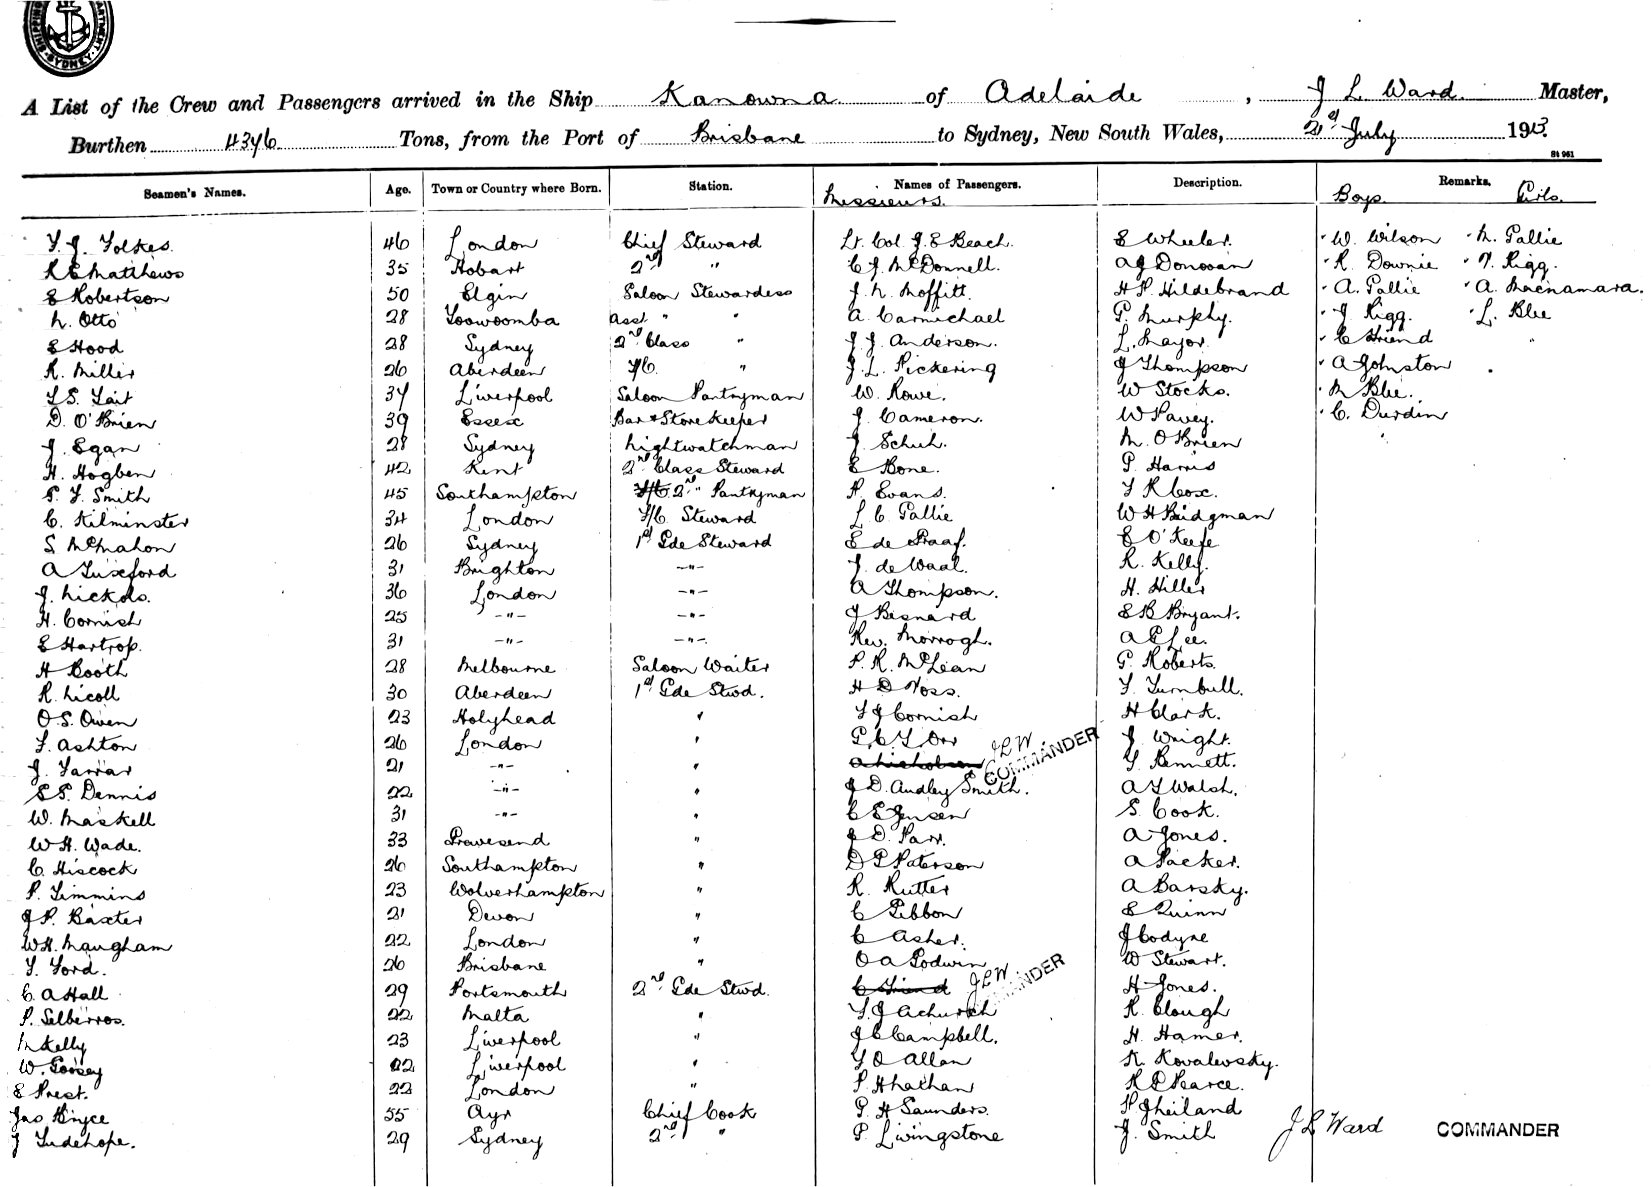 SHIPPING DEPARTMENT SYDNEY
A List of the Crew and Passengers arrived in the Ship Kanowna of Adelaide, J L Ward Master,
Burthen 4346 Tons, from the Port of Brisbane to Sydney, New South Wales, 21st July 1913.
St 961
Seamen's Names. Age. Town or Country where Born. Station. Names of Passengers. Description. Remarks.
Messieurs. Boys. Girls.
46 London Chief Steward Lt. Col. J. E Beach. E Wheeler. W. Wilson M. Gallie
R E Matthews 35 Hobart 2nd " C. J. McDonnell. A J Donovan R. Downie V. Rigg.
E Robertson 50 Elgin Saloon Stewardess J. N. Moffitt. H P Hildebrand A. Gallie A. Macnamara.
N. Otto 28 Toowoomba Asst " " A. Carmichael G. Murphy. J Rigg. L. Blue
E Hood 28 Sydney 2nd Class " J. J. Anderson. L. Mayor. C Friend
R. Miller 26 Aberdeen F/C. " J. L. Pickering J Thompson A Johnston
T S. Tait 34 Liverpool Saloon Pantryman W. Rowe. W Stocks. M Blue.
D. O'Brien 39 Essex Bar & Storekeeper J. Cameron. W Pavey. C. Durdin
J. Egan 28 Sydney Nightwatchman J. Schuh. M. O'Brien
H. Hogben 42 Kent 2nd Class Steward E Bone. G. Harris
P. F. Smith 45 Southampton F/C 2nd " Pantryman R. Evans. T R Cox.
C. Kilminster 34 London F/C. Steward L C Gallie W H Bridgman
S. McMahon 26 Sydney 1st Gde Steward E de Graaf. E O'Keefe
A Tuxford 31 Brighton - " - J. de Waal. R. Kelly.
J. Nickols. 36 London - " - A Thompson. H. Hiller
H. Cornish 25 - " - - " - J Besnard E B Bryant.
E Hartrop. 31 - " - - " - Rev. Morrogh. A E Lee.
H Booth 28 Melbourne Saloon Waiter P. R. McLean G. Roberts.
R. Nicoll 30 Aberdeen 1st Gde Stwd. H D Voss. T. Turnbull.
O. S. Owen 23 Holyhead " T J Cornish H Clark.
F. Ashton 26 London " G. C. T. Orr J. Wright.
J. Farrar 21 - " - " A Nicholson J L W COMMANDER T. Bennett.
E S. Dennis 22 - " - " J D. Audley Smith. A T Walsh.
W. Maskell 31 - " - " C E Jensen S. Cook.
W H. Wade. 33 Gravesend " J D. Parr. A Jones.
C. Hiscock 26 Southampton " D G Paterson A Packer.
P. Timmins 23 Wolverhampton " R. Rutter A Barsky.
J P. Baxter 21 Devon " C Gibbon E Quinn
W H. Maugham 22 London " C Asher. J Codyre
T. Ford. 26 Brisbane " O A Godwin W Stewart.
C. A Hall 29 Portsmouth 2nd Gde Stwd. C Friend J L W COMMANDER H Jones.
P. Selberros. 22 Malta " T. J Achurch R. Clough
M Kelly 23 Liverpool " J C Campbell. H. Hamer.
W. Goosey 22 Liverpool " T O Allan K. Kovalevsky.
E Prest. 22 London " P H Nathan R P Pearce.
Jas Bryce 55 Ayr Chief Cook G. H Saunders.
J Tudehope. 29 Sydney 2nd " P. Livingstone J. Smith J L Ward COMMANDER